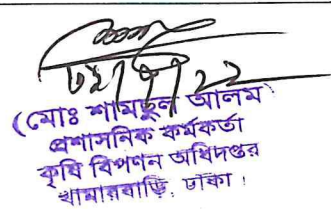 (মোঃ শামছুল আলম
প্রশাসনিক কর্মকর্তা
কৃষি বিপণন অধিদপ্তর
খামারবাড়ি, ঢাকা।